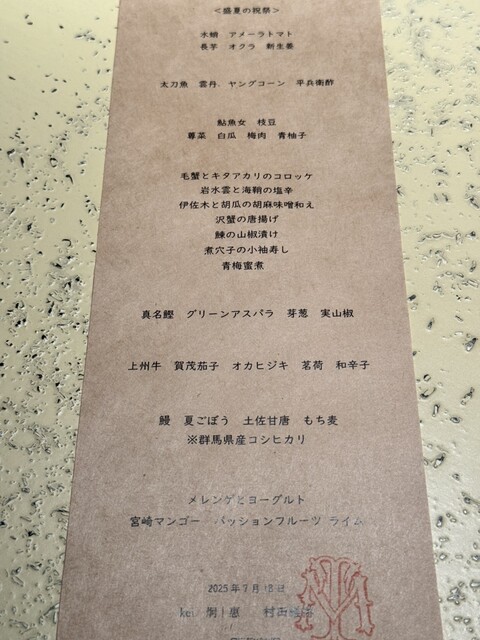 <盛夏の祝祭>
水蛸 アメーラトマト
長芋 オクラ 新生姜
太刀魚 雲丹 ヤングコーン 平兵衛酢
鮎魚女 枝豆
蓴菜 白瓜 梅肉 青柚子
毛蟹とキタアカリのコロッケ
岩水雲と海鞘の塩辛
伊佐木と胡瓜の胡麻味噌和え
沢蟹の唐揚げ
鰊の山椒漬け
煮穴子の小袖寿し
青梅蜜煮
真名鰹 グリーンアスパラ 芽葱 実山椒
上州牛 賀茂茄子 オカヒジキ 茗荷 和辛子
鰻 夏ごぼう 土佐甘唐 もち麦
※群馬県産コシヒカリ
メレンゲとヨーグルト
宮崎マンゴー パッションフルーツ ライム
2025年7月18日
kei 村田